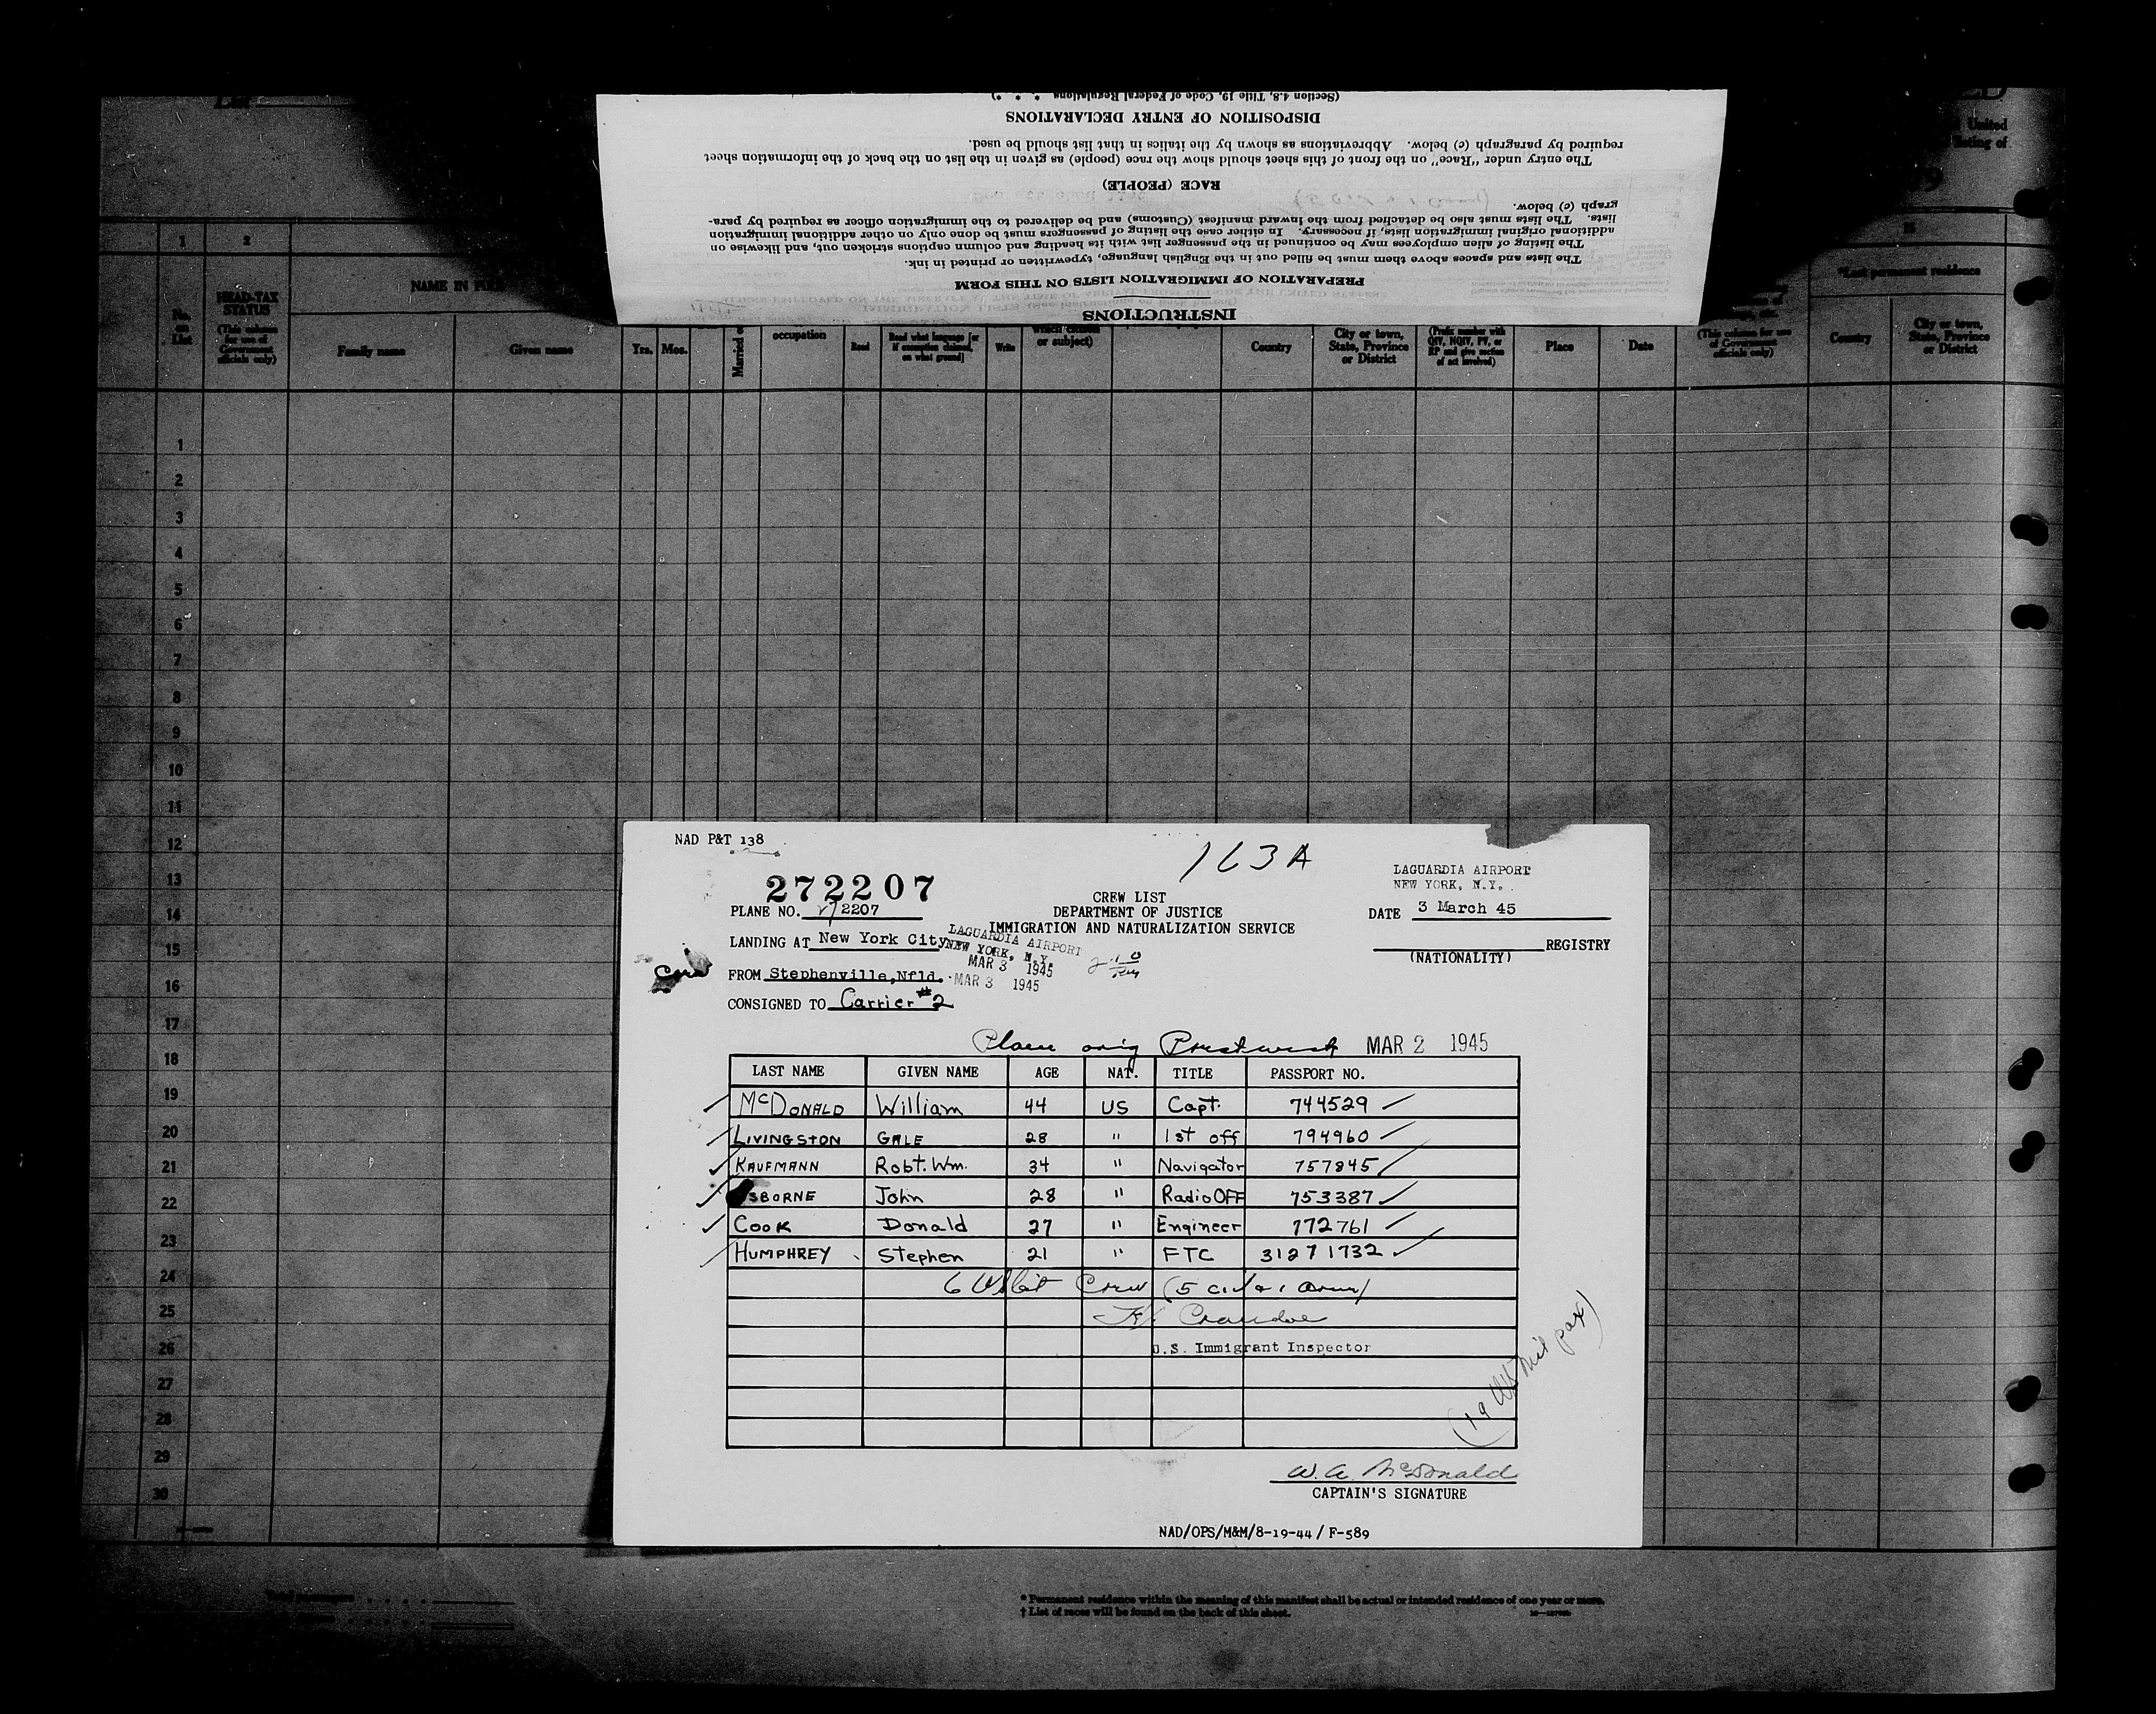 List
United
listing of
(Section 4.8, Title 19, Code of Federal Regulations * * *)
DISPOSITION OF ENTRY DECLARATIONS
required by paragraph (c) below. Abbreviations as shown by the italics in that list should be used.
The entry under "Race" on the front of this sheet should show the race (people) as given in the list on the back of the information sheet
RACE (PEOPLE)
graph (c) below.
lists. The lists must also be detached from the inward manifest (Customs) and be delivered to the immigration officer as required by para-
additional original immigration lists, if necessary. In either case the listing of passengers must be done only on other additional immigration
The listing of alien employees may be continued in the passenger list with its heading and column captions stricken out, and likewise on
The lists and spaces above them must be filled out in the English language, typewritten or printed in ink.
PREPARATION OF IMMIGRATION LISTS ON THIS FORM
INSTRUCTIONS
1 2 15
No. on List
HEAD-TAX STATUS
(This column for use of Government officials only)
NAME IN FULL
Family name
Given name
Yrs. Mos.
Married
occupation
Read
Read what language [or if exemption claimed, on what ground]
Write
which citizen or subject)
Country
City or town, State, Province or District
(Prefix number with QIV, NQIV, PV, or RP and give section of act involved)
Place
Date
(This column for use of Government officials only)
*Last permanent residence
Country
City or town, State, Province or District
1
2
3
4
5
6
7
8
9
10
11
12
13
14
15
16
17
18
19
20
21
22
23
24
25
26
27
28
29
30
NAD P&T 138
163A
LAGUARDIA AIRPORT
NEW YORK, N.Y.
272207
CREW LIST
PLANE NO. 27 2207
DEPARTMENT OF JUSTICE
DATE 3 March 45
IMMIGRATION AND NATURALIZATION SERVICE
LANDING AT New York City
LAGUARDIA AIRPORT
NEW YORK, N.Y.
MAR 3 1945
REGISTRY
(NATIONALITY)
FROM Stephenville, Nfld.
MAR 3 1945
CONSIGNED TO Carrier #2
Plane orig Prestwick MAR 2 1945
LAST NAME GIVEN NAME AGE NAT. TITLE PASSPORT NO.
McDONALD William 44 US Capt. 744529
LIVINGSTON GALE 28 " 1st off 794960
KAUFMANN Robt. Wm. 34 " Navigator 757845
OSBORNE John 28 " Radio OFF 753387
COOK Donald 27 " Engineer 772761
HUMPHREY Stephen 21 " FTC 31271732
6 USCit Crew (5 civ & 1 army)
U.S. Immigrant Inspector
(19 US mil pax)
W. A. McDonald
CAPTAIN'S SIGNATURE
NAD/OPS/M&M/8-19-44/F-589
* Permanent residence within the meaning of this manifest shall be actual or intended residence of one year or more.
† List of races will be found on the back of this sheet.